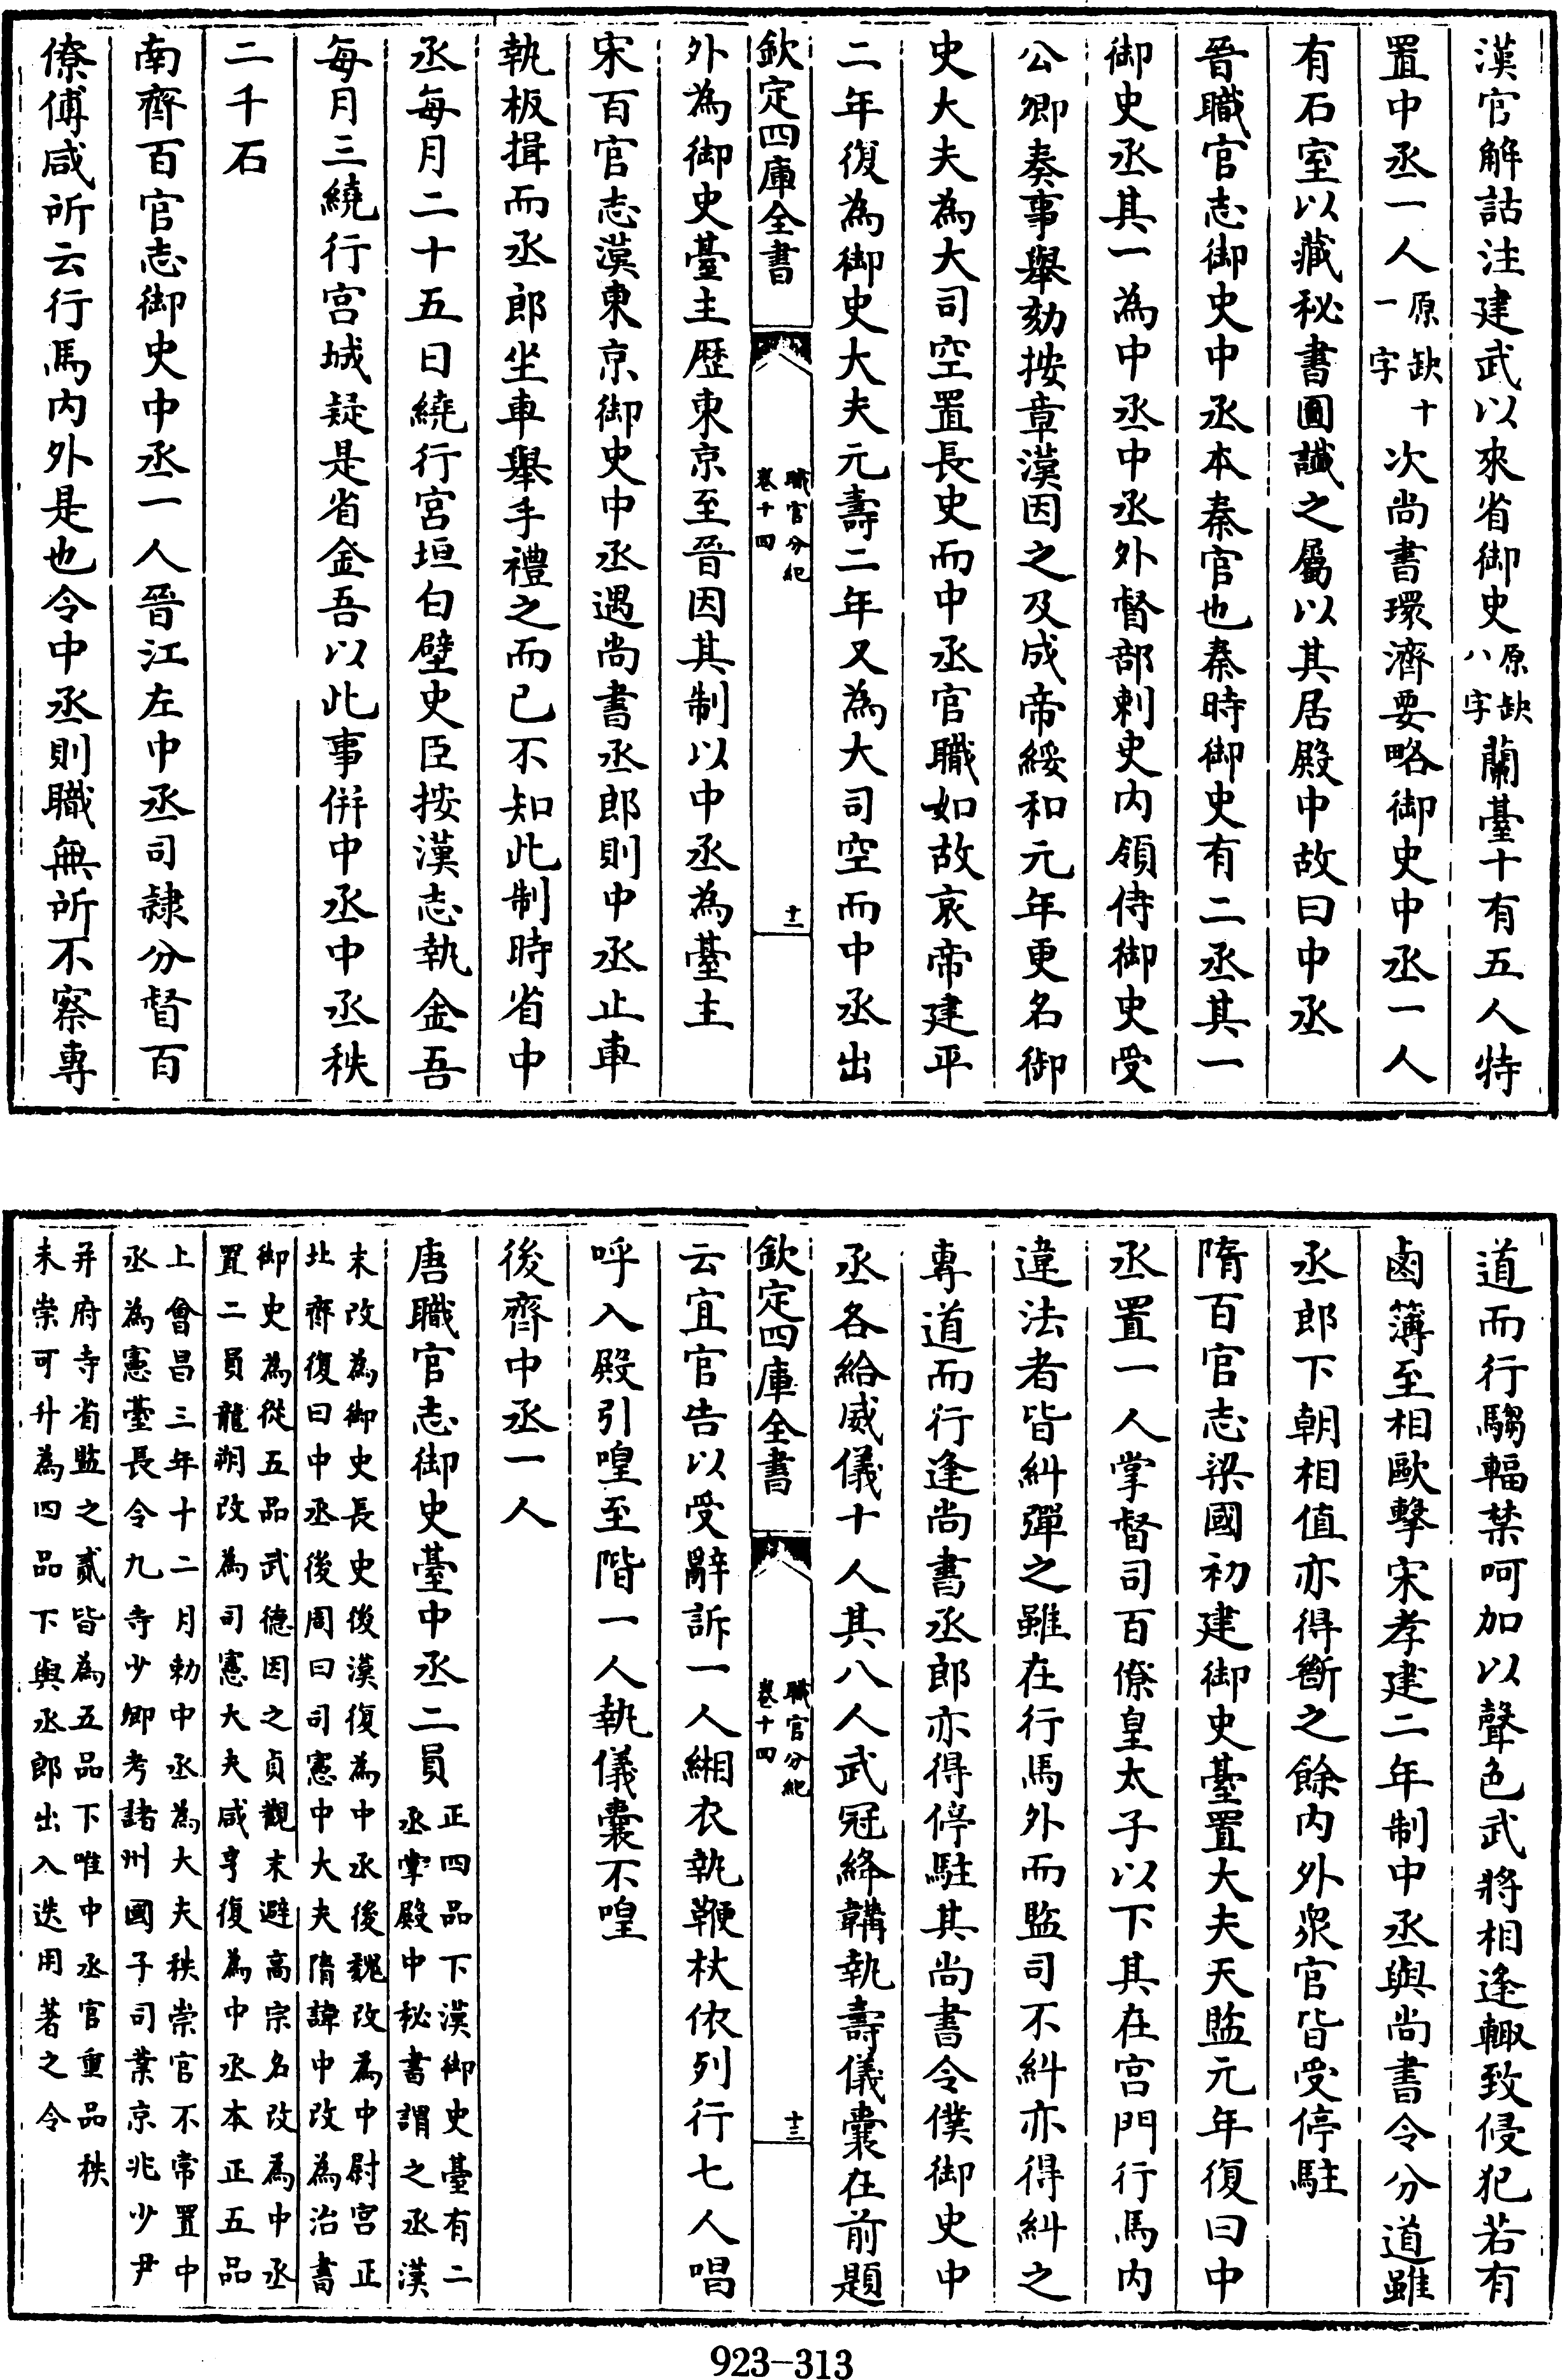 漢官解詁注建武以來省御史原缺八字蘭臺十有五人特
置中丞一人原缺十一字次尚書環濟要略御史中丞一人
有石室以藏秘書圖讖之屬以其居殿中故曰中丞
晉職官志御史中丞本秦官也秦時御史有二丞其一
御史丞其一為中丞中丞外督部刺史内領侍御史受
公卿奏事舉劾按章漢因之及成帝綏和元年更名御
史大夫為大司空置長史而中丞官職如故哀帝建平
二年復為御史大夫元壽二年又為大司空而中丞出
欽定四庫全書
職官分紀
卷十四
十二
外為御史臺主歷東京至晉因其制以中丞為臺主
宋百官志漢東京御史中丞遇尚書丞郎則中丞止車
執板揖而丞郎坐車舉手禮之而已不知此制時省中
丞每月二十五日繞行宮垣白壁史臣按漢志執金吾
每月三繞行宮城疑是省金吾以此事併中丞中丞秩
二千石
南齊百官志御史中丞一人晉江左中丞司隸分督百
僚傅咸所云行馬内外是也令中丞則職無所不察專
道而行騶輻禁呵加以聲色武將相逢輙致侵犯若有
鹵簿至相歐擊宋孝建二年制中丞與尚書令分道雖
丞郎下朝相值亦得斷之餘内外衆官皆受停駐
隋百官志梁國初建御史臺置大夫天監元年復曰中
丞置一人掌督司百僚皇太子以下其在宮門行馬内
違法者皆糾彈之雖在行馬外而監司不糾亦得糾之
專道而行逢尚書丞郎亦得停駐其尚書令僕御史中
丞各給威儀十人其八人武冠絳韝執壽儀囊在前題
欽定四庫全書
職官分紀
卷十四
十三
云宜官告以受辭訴一人緗衣執鞭杖依列行七人唱
呼入殿引喤至階一人執儀囊不喤
後齊中丞一人
唐職官志御史臺中丞二員正四品下漢御史臺有二
丞掌殿中秘書謂之丞漢
末改為御史長史後漢復為中丞後魏改為中尉宮正
北齊復曰中丞後周曰司憲中大夫隋諱中改為治書
御史為從五品武德因之貞觀末避高宗名改為中丞
置二員龍朔改為司憲大夫咸亨復為中丞本正五品
上會昌三年十二月勅中丞為大夫秩崇官不常置中
丞為憲臺長令九寺少卿考諸州國子司業京兆少尹
并府寺省監之貳皆為五品下唯中丞官重品秩
未崇可升為四品下與丞郎出入迭用著之令
923-313